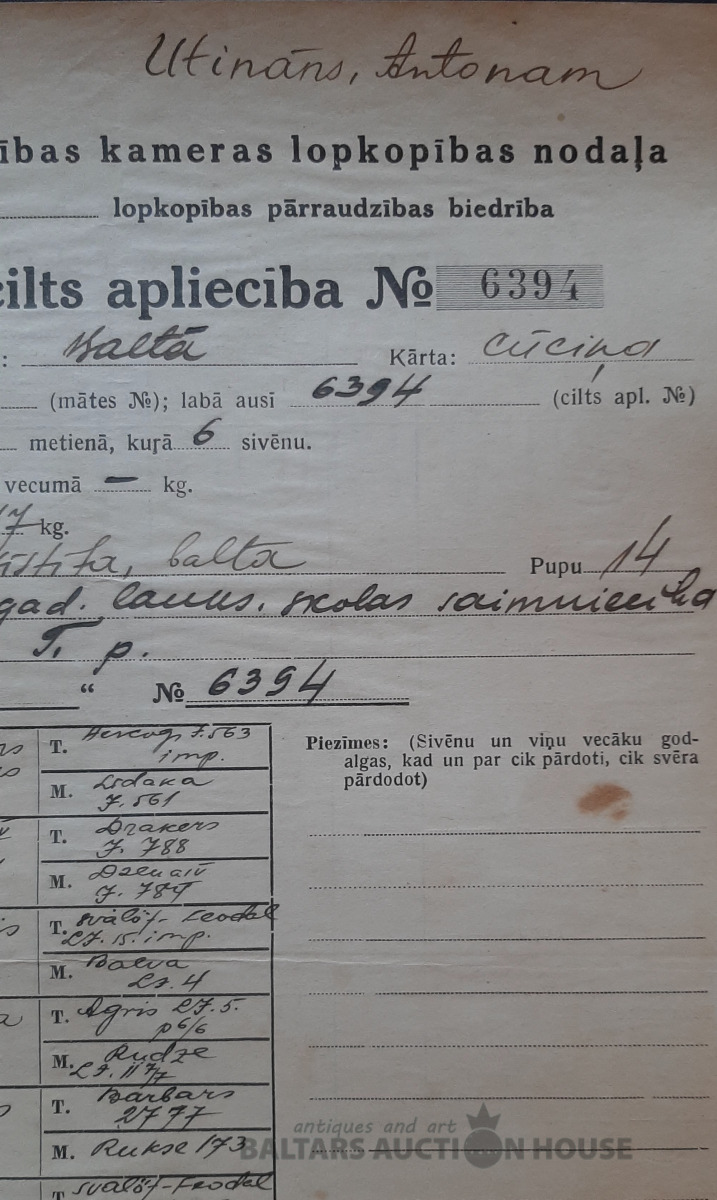 Utināns, Antonam
ības kameras lopkopības nodaļa
lopkopības pārraudzības biedrība
cilts apliecība № 6394
: Baltā Kārta: cūciņa
(mātes №); labā ausī 6394 (cilts apl. №)
metienā, kuŗā 6 sivēnu.
vecumā — kg.
17 kg.
balta Pupu 14
gad. lauks. skolas saimniecība
T. p.
“ № 6394
T. Hercogs J. 563
imp.
Piezīmes: (Sivēnu un viņu vecāku god-
algas, kad un par cik pārdoti, cik svēra
pārdodot)
M.
J. 561
T. Drakers
J. 788
M.
J. 789
T. Svalöf-Feodal
LJ. 15. imp.
M. Balva
LJ. 4
T. Agris LJ. 5.
p 6/6
M. Rudze
T. Barbars
2777
M. Rukse 173
T. Svalöf-Feodal
antiques and art
BALTARS AUCTION HOUSE